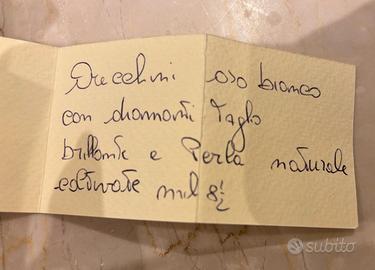 Orecchini oro bianco
con diamanti Taglio
brillante e Perla naturale
coltivate mil 8½
subito